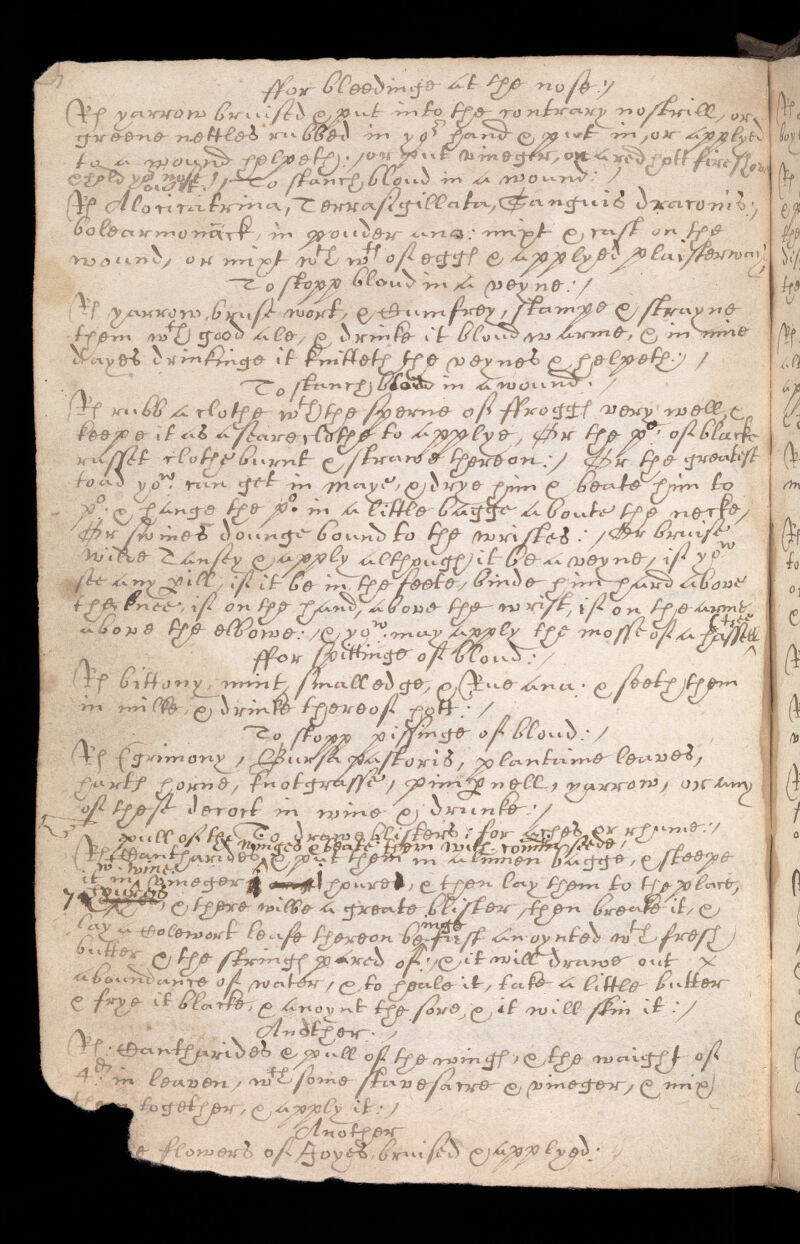 ffor bleedinge at the nose:/
Rh yarrow bruised & put into the contrary nostrill, or
greene nettles rubbed in yor hand & put in, or applyed
to a wound helpeth:, or put vineger, on a red hott fire
& hold yor nose
To stanch bloud in a wound:/
Rh Aloecicatrina, Terrasigillata, Sanguis draconis,
bolearmoniack, in pouder ana: mixt & cast on the
wound, or mixt wth wth of eggs & applyed plaisterway
To stopp bloud in a veyne:/
Rh yarrow, bruse wort, & Cumfrey, stampe & strayne
them wth good ale, & drinke it bloud warme, & in nine
dayes drinkinge it knitteth the veynes & helpeth:/
To stanch bloud in a wound:
Rh rubb a clothe wth the sperne of ffroggs very well, &
keepe it as a seareclothe to applye, Or the po: of blacke
russet clothe burnt & strawe thereon:/ Or the greatest
toad you can get in maye, & drye him & beate him to
po: & hange the po: in a little bagge aboute the necke,
Or swines dounge bound to the wristes:/ Or bruise
wilde Tansey & apply although it be a veyne, if you
see any perill, if it be in the feete, binde him hard above
the knee, if on the hand, above the wrist, if on the arme
above the elbowe:, & you may apply the mosse of a hassell tree
ffor spittinge of bloud:/
Rh bittony, mint, smalledge, & Rue ana. & seeth them
in milke, & drinke thereof hott:/
To stopp pissinge of bloud:/
Rh Egrimony, Bursa pastoris, plantaine leaves,
harts horne, knotgrasse, pimpernell, yarrow, or any
of these decoct in wine & drunke:/
To drawe blisters: for aches or rhume:/
pull of the winges & beate them with cominseede,
Rh Cantharides, & put them in a linnen bagge, & steepe
it in vineger houre, & then lay them to the place,
& there wilbe a greate blister, then breake it, &
lay a Colewort leafe thereon beinge first anoynted wth fresh
butter & the strings pared of:, & it will drawe out
aboundance of water, & to heale it, take a little butter
& frye it blacke, & anoynt the sore, & it will skin it:/
Another:/
Rh: Cantharides & pull of the wings, & the waight of
4d in leaven, wth some stavesacre & vineger, & mix
them together, & apply it:/
Another
flowers of bruised & applyed: